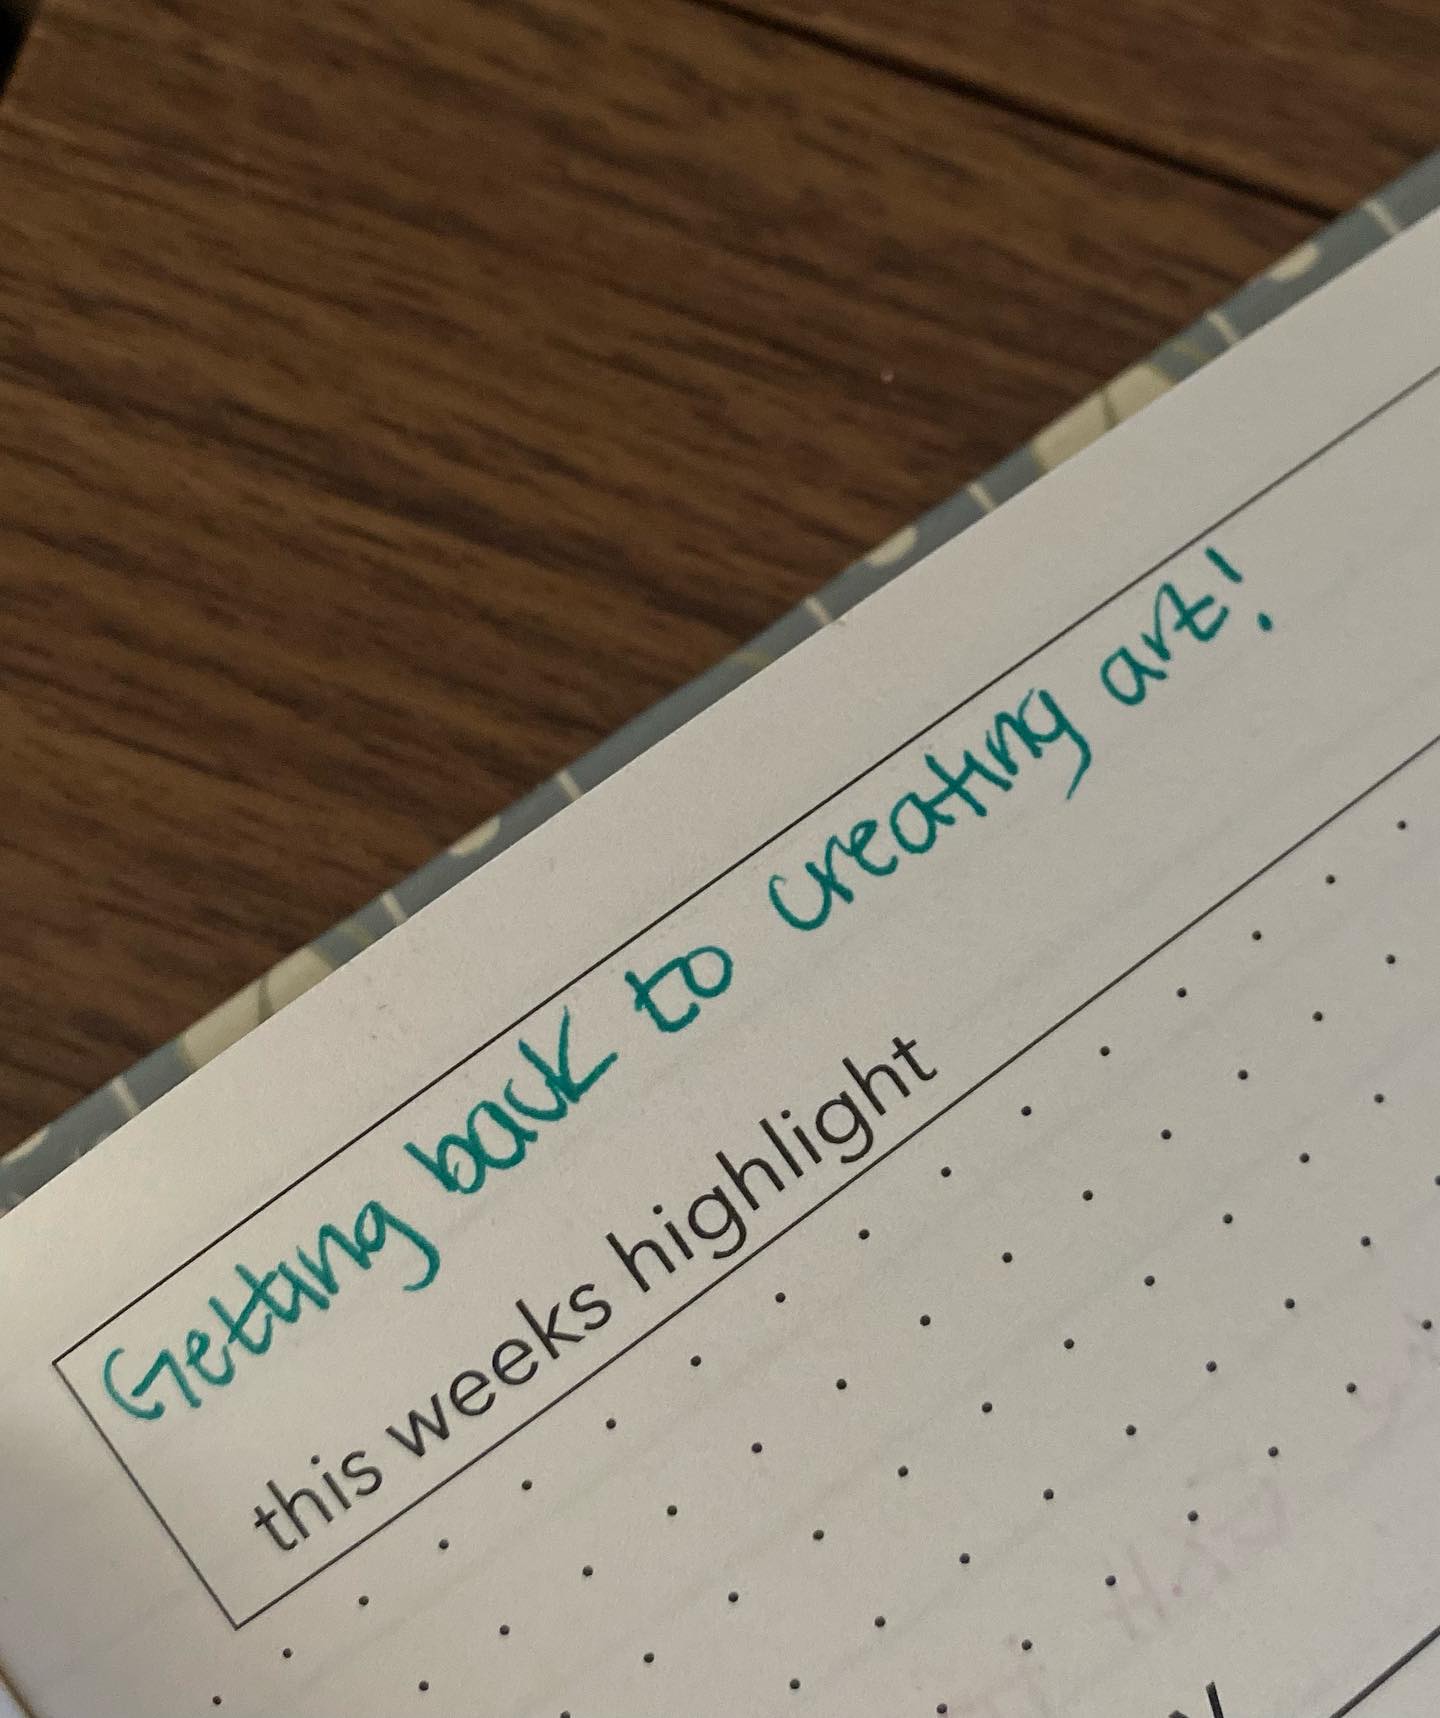 Getting back to creating art!
this weeks highlight